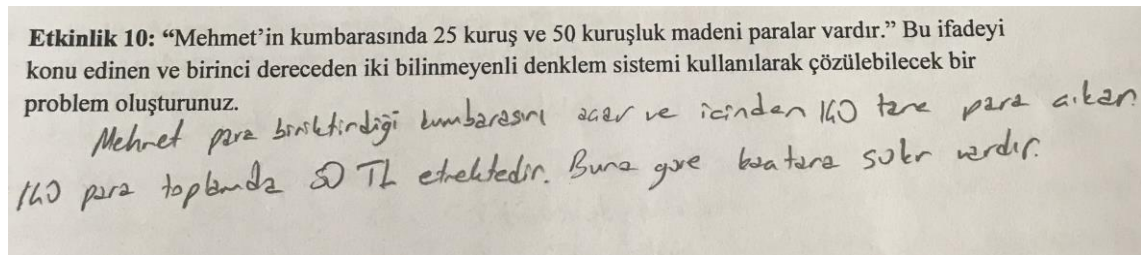 Etkinlik 10: “Mehmet’in kumbarasında 25 kuruş ve 50 kuruşluk madeni paralar vardır.” Bu ifadeyi
konu edinen ve birinci dereceden iki bilinmeyenli denklem sistemi kullanılarak çözülebilecek bir
problem oluşturunuz.
Mehmet para biriktirdiği kumbarasını açar ve içinden 140 tane para çıkar.
140 para toplamda 50 TL etmektedir. Buna göre kaç tane 50kr vardır.